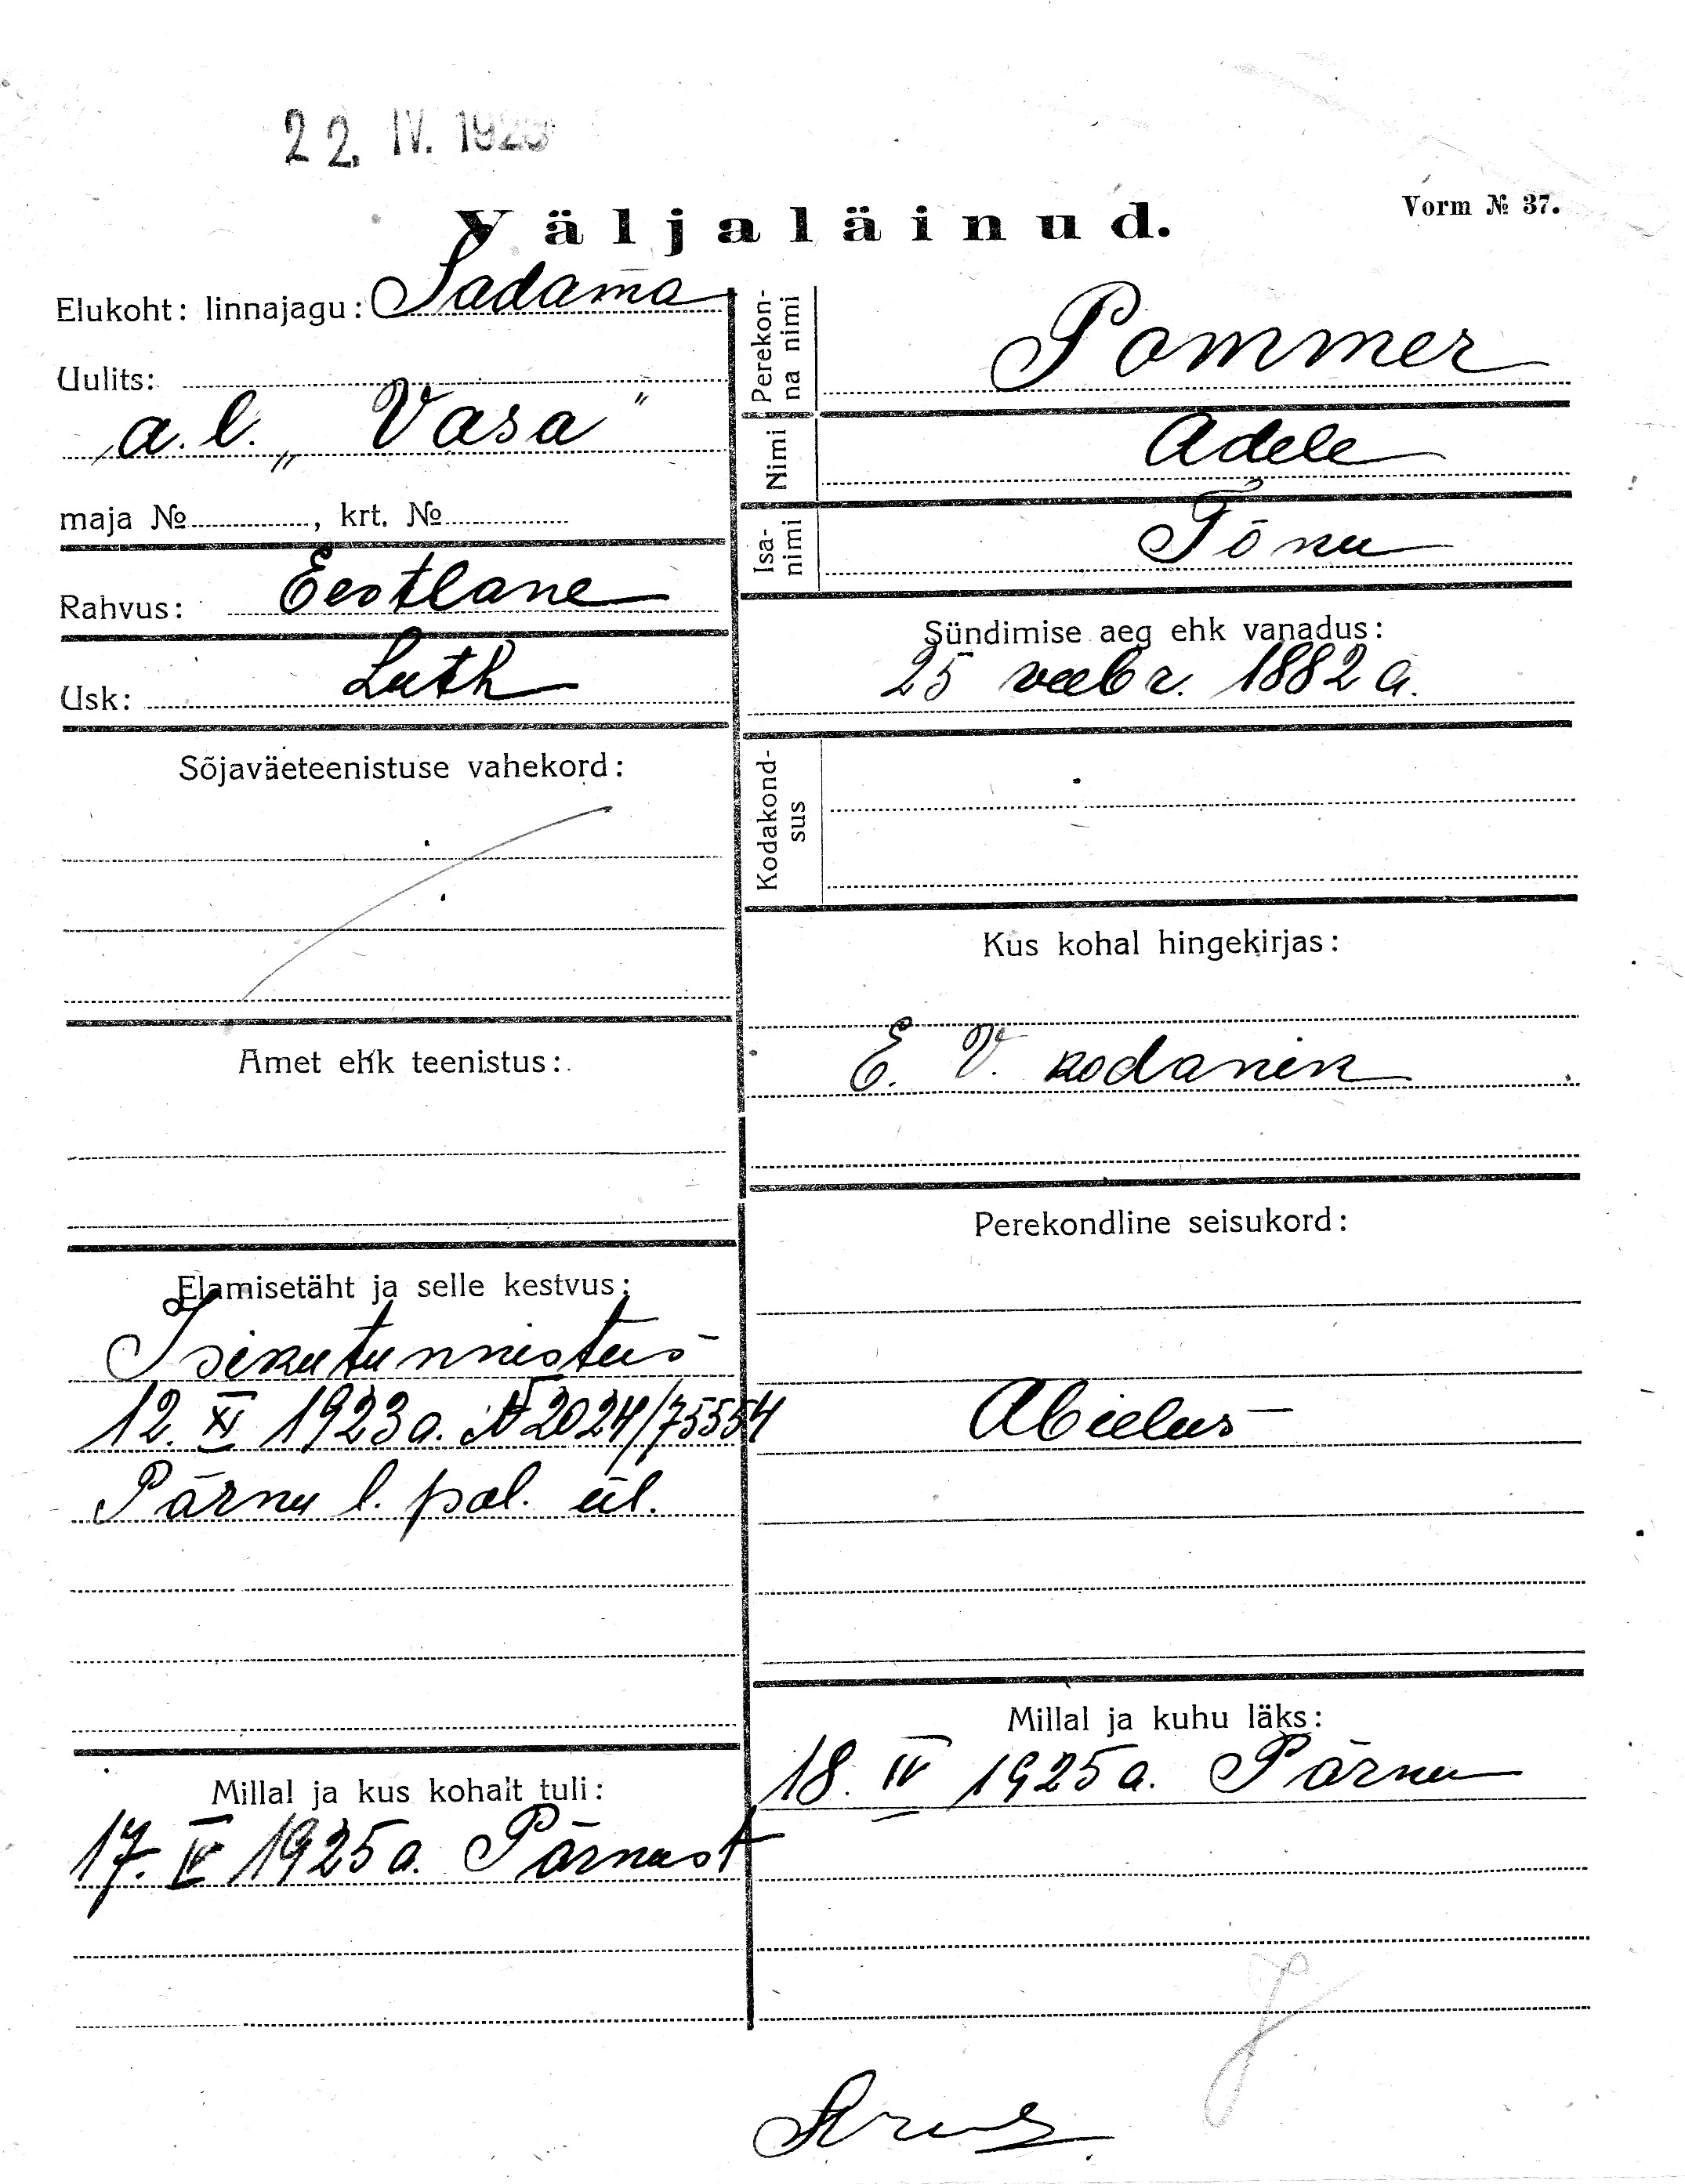 22. IV. 1925
Vorm № 37.
Väljaläinud.
Elukoht: linnajagu: Sadama
Uulits:
a. l. „Vasa"
maja № , krt. №
Rahvus: Eestlane
Usk: Luth
Sõjaväeteenistuse vahekord:
Amet ehk teenistus:
Elamisetäht ja selle kestvus:
Isikutunnistus
12. XI 1923 a. № 2024/75554
Pärnu l. pol. ül.
Millal ja kus kohalt tuli:
17. IV 1925 a. Pärnust
Perekon-
na nimi
Pommer
Nimi
Adele
Isa-
nimi
Tõnu
Sündimise aeg ehk vanadus:
25 veebr. 1882 a.
Kodakond-
sus
Kus kohal hingekirjas:
E. V. kodanik
Perekondline seisukord:
Abielus
Millal ja kuhu läks:
18. IV 1925 a. Pärnu